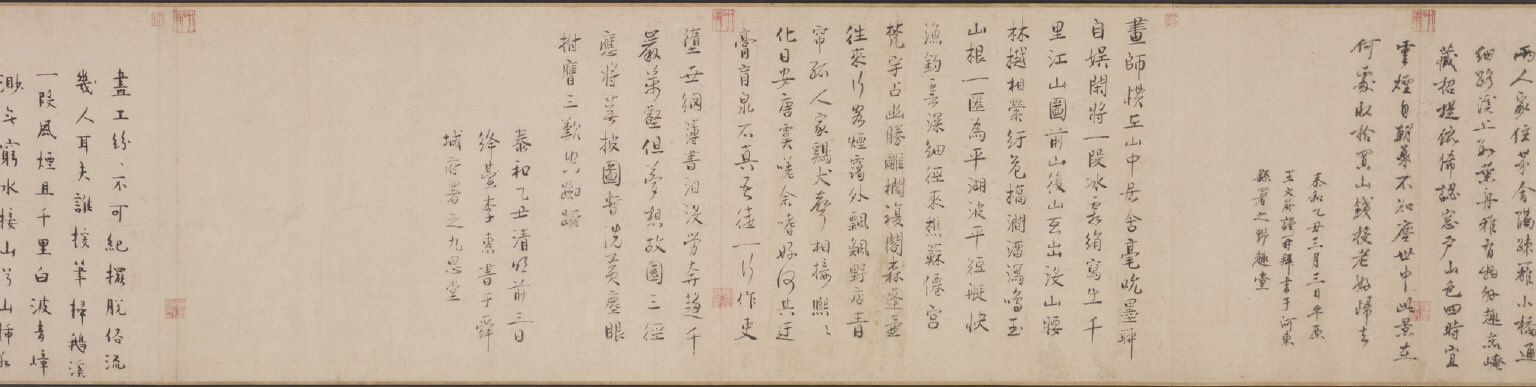 兩人家住茅舍隔疎籬小橋通
藏招提依俙認窓戶山色四時宜
雲煙自朝暮不知塵世中此景在
何處收拾買山錢投老好歸去
泰和乙丑三月三日平原
王文蔚謹再拜書于河東
縣署之野趣堂
畫師慣在山中居含毫吮墨聊
自娛閑將一段冰蚕絹寫出千
里江山圖前山後山互出没山腰
林樾相縈紆危橋澗瀋瀉鳴玉
山根一匯為平湖波平短艇快
漁釣雲深細徑來樵蘇僊宮
梵宇占幽勝雕欄複閣森蓬壺
往來行客煙靄外飄飄野店青
帘孤人家鷄犬聲相接熙〻
化日安唐虞嗟余嗜好何其迂
膏肓泉石真吾徒一行作吏
墮世網簿書汩没勞奔趨千
巖萬壑但夢想故園三徑
應將蕪披圖暫洗黃塵眼
拊膺三歎空踟躕
泰和乙丑清明前三日
絳臺李惠書于舜
城府署之九思堂
畫工紛〻不可紀擺脱俗流
幾人耳夫誰援筆掃鵝溪
一段風煙且千里白波青嶂
渺無窮水接山兮山插水